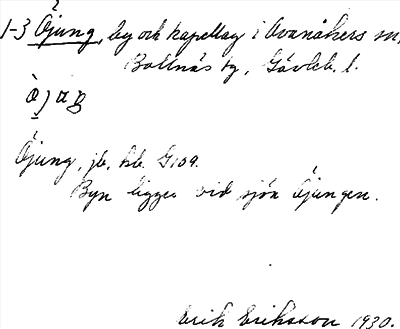 1-3 Öjung, by och kapellag i Ovanåkers sn,
Bollnäs tg, Gävleb. l.
Öjung, jb, hb. G109.
Byn ligger vid sjön Öjungen.
Erik Eriksson 1930.